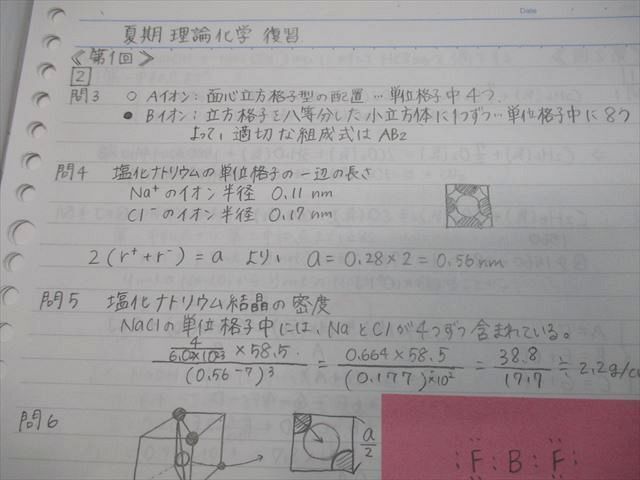 Date
夏期 理論化学 復習
≪第1回≫
2
問3 ○ Aイオン: 面心立方格子型の配置 … 単位格子中 4つ.
● Bイオン: 立方格子を八等分した小立方体に1つずつ … 単位格子中に 8つ
よって, 適切な組成式は AB2
問4 塩化ナトリウムの単位格子の一辺の長さ
Na⁺のイオン半径 0.11 nm
Cl⁻のイオン半径 0.17 nm
2(r⁺+r⁻)=a より, a=0.28×2=0.56nm
問5 塩化ナトリウム結晶の密度
NaClの単位格子中には, NaとClが4つずつ含まれている。
4/6.0×10²³ ×58.5. / (0.56⁻⁷)³ = 0.664×58.5 / (0.177)×10² = 38.8/17.7 ≒ 2.2g/c
問6
a/2
:F:B:F: